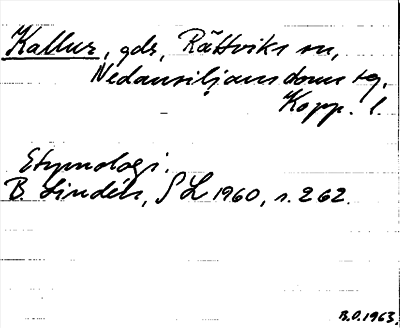 Kallur, gdr, Rättviks sn,
Nedansiljans doms tg,
Kopp. l.
Etymologi.
B. Lindén, SL 1960, s. 262.
B.O. 1963.